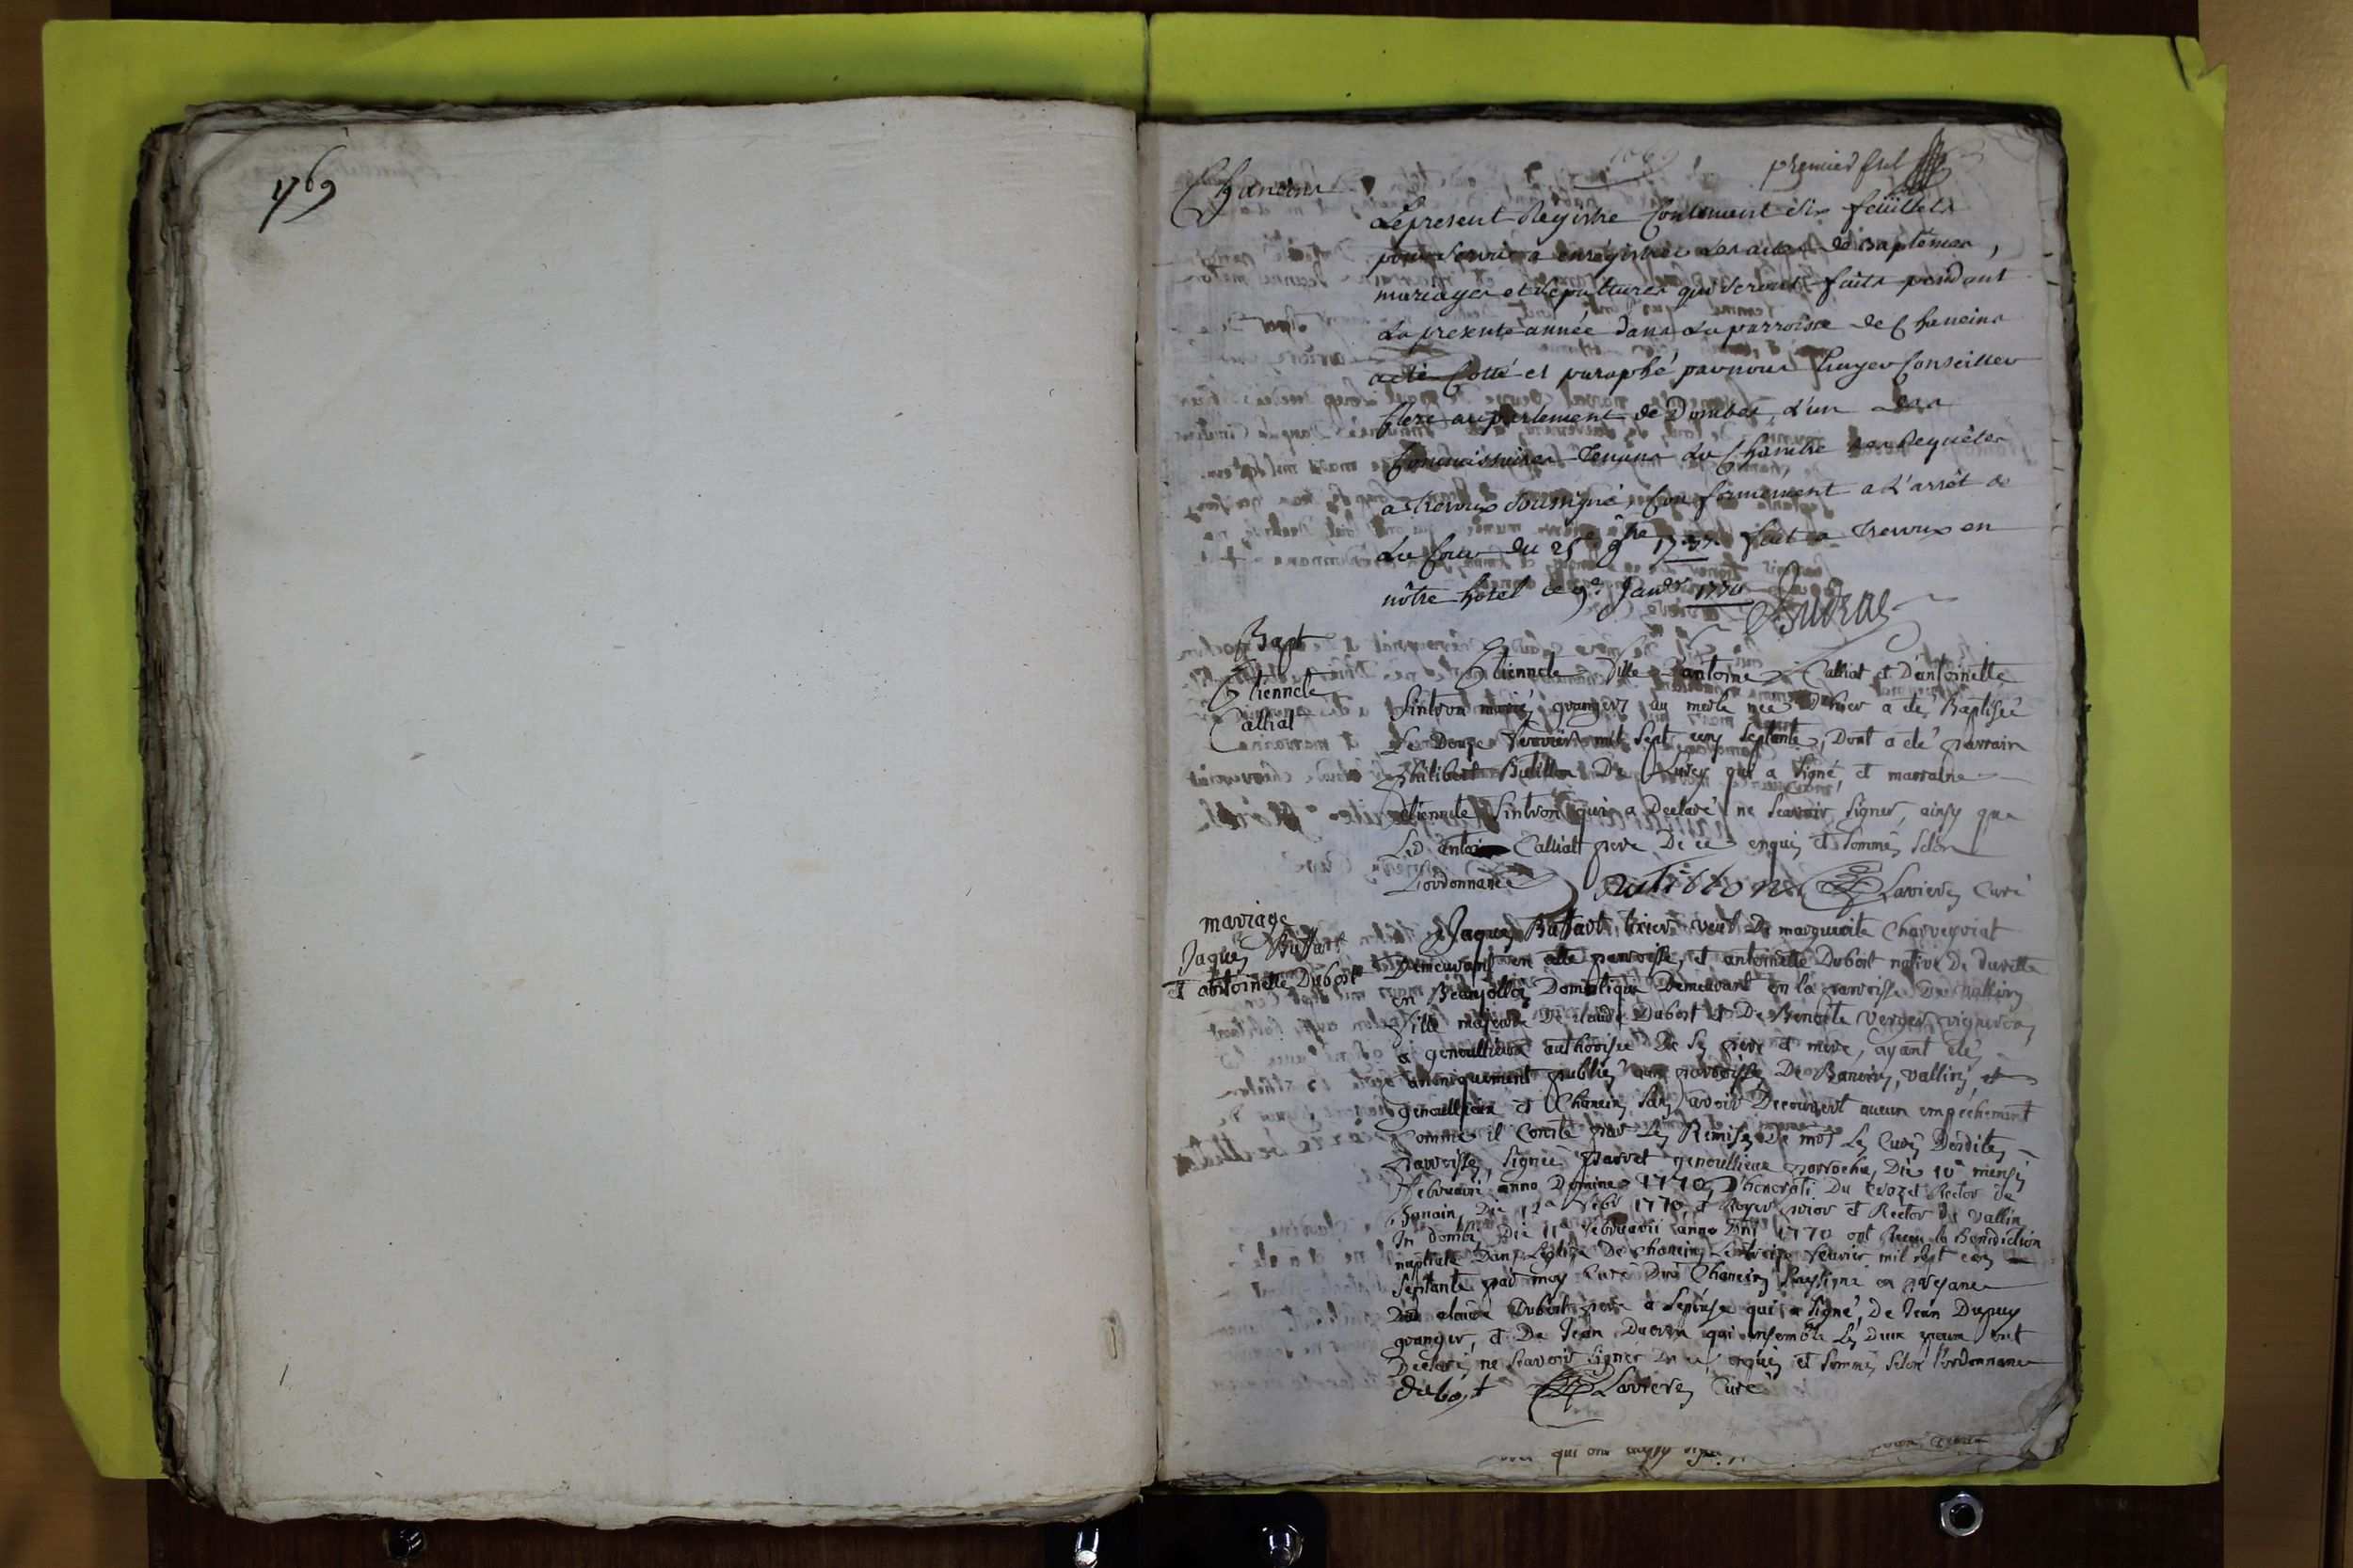 1769
Chaneins
premier
Le present Registre Contenant six feüillets
pour servir a enregistrer les actes de Baptêmes,
mariages et sepultures qui seront faits pendant
La presente année dans la parroisse de Chaneins
a été Cotté et paraphé par nous Conseiller
Clerc au parlement de Dombes, L'un des
Commissaires Tenans La Chambre des Requêtes
a Trevoux soussigné, Conformement a L'arrêt de
La Cour du 25 9bre fait a Trevoux en
nôtre hôtel ce 9e Janvr 1770
Bapt
Etiennete
Calliat
Etiennete fille antoine Calliat et D'antoinette
Sintron mariés grangers au merle née d'hier a été Baptisée
Le Douze fevrier mil sept cens septante, Dont a été parrain
philibert De Lurcy qui a signé, et marraine
etiennete Sintron qui a Declaré ne scavoir signer, ainsy que
Led Calliat pere De ce enquis et sommés selon
L'ordonnance Lavieres Curé
mariage
Jaques Buffart
et antoinette Dubost
Jaques Buffart, veuf De marguerite Charveyriat
Demeurant en cette parroisse, et antoinette Dubost native De
en Beaujollois Domestique Demeurant en la parroisse De Vallins
fille majeure De claude Dubost et De Benoite Verger vignerons
a genoullieux authorisée De ses pere et mere, ayant etés
canoniquement publiés aux parroisses De Banains, Vallins, et
genoullieux et Chaneins sans avoir Decouvert aucun empechement
Comme il Conste par Les Remises De mrs Les Curés Desdites
parroisses, signées genoullieux parrochus, Die 10a mensis
februarii anno Domine 1770, Du crozet Rector de
Banain, Die 12a febr 1770, et Royer prior et Rector De Vallin
In dombis Die 11a februarii anno Dni 1770 ont Recu la Benediction
nuptiale Dans L'eglise De Chaneins Le treize fevrier mil sept cens
septante par moy Curé Dud Chaneins soussigné en presance
Dud claude Dubost pere a L'epouse qui a signé, De Jean Dupuy
granger, et De Jean qui ensemble Les Deux epoux ont
Declaré ne scavoir signer De ce enquis et sommés selon l'ordonnance
dubost Lavieres Curé
qui ont aussy